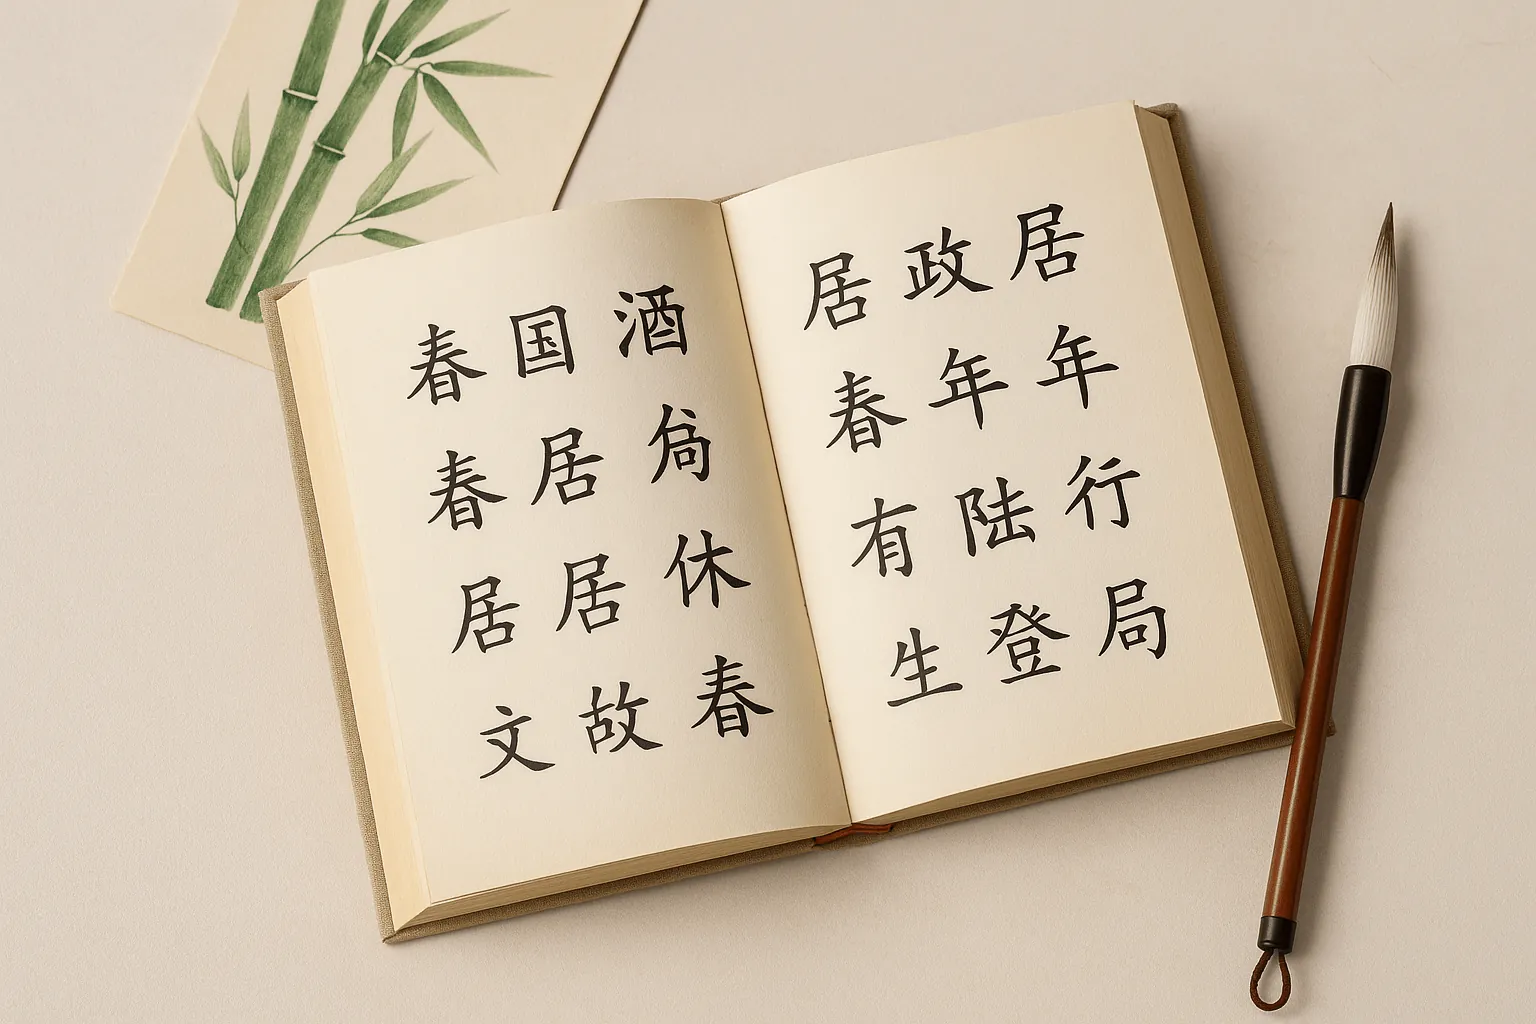 春国酒
春居
居居休
文故春
居政居
春年年
有陆行
生登局